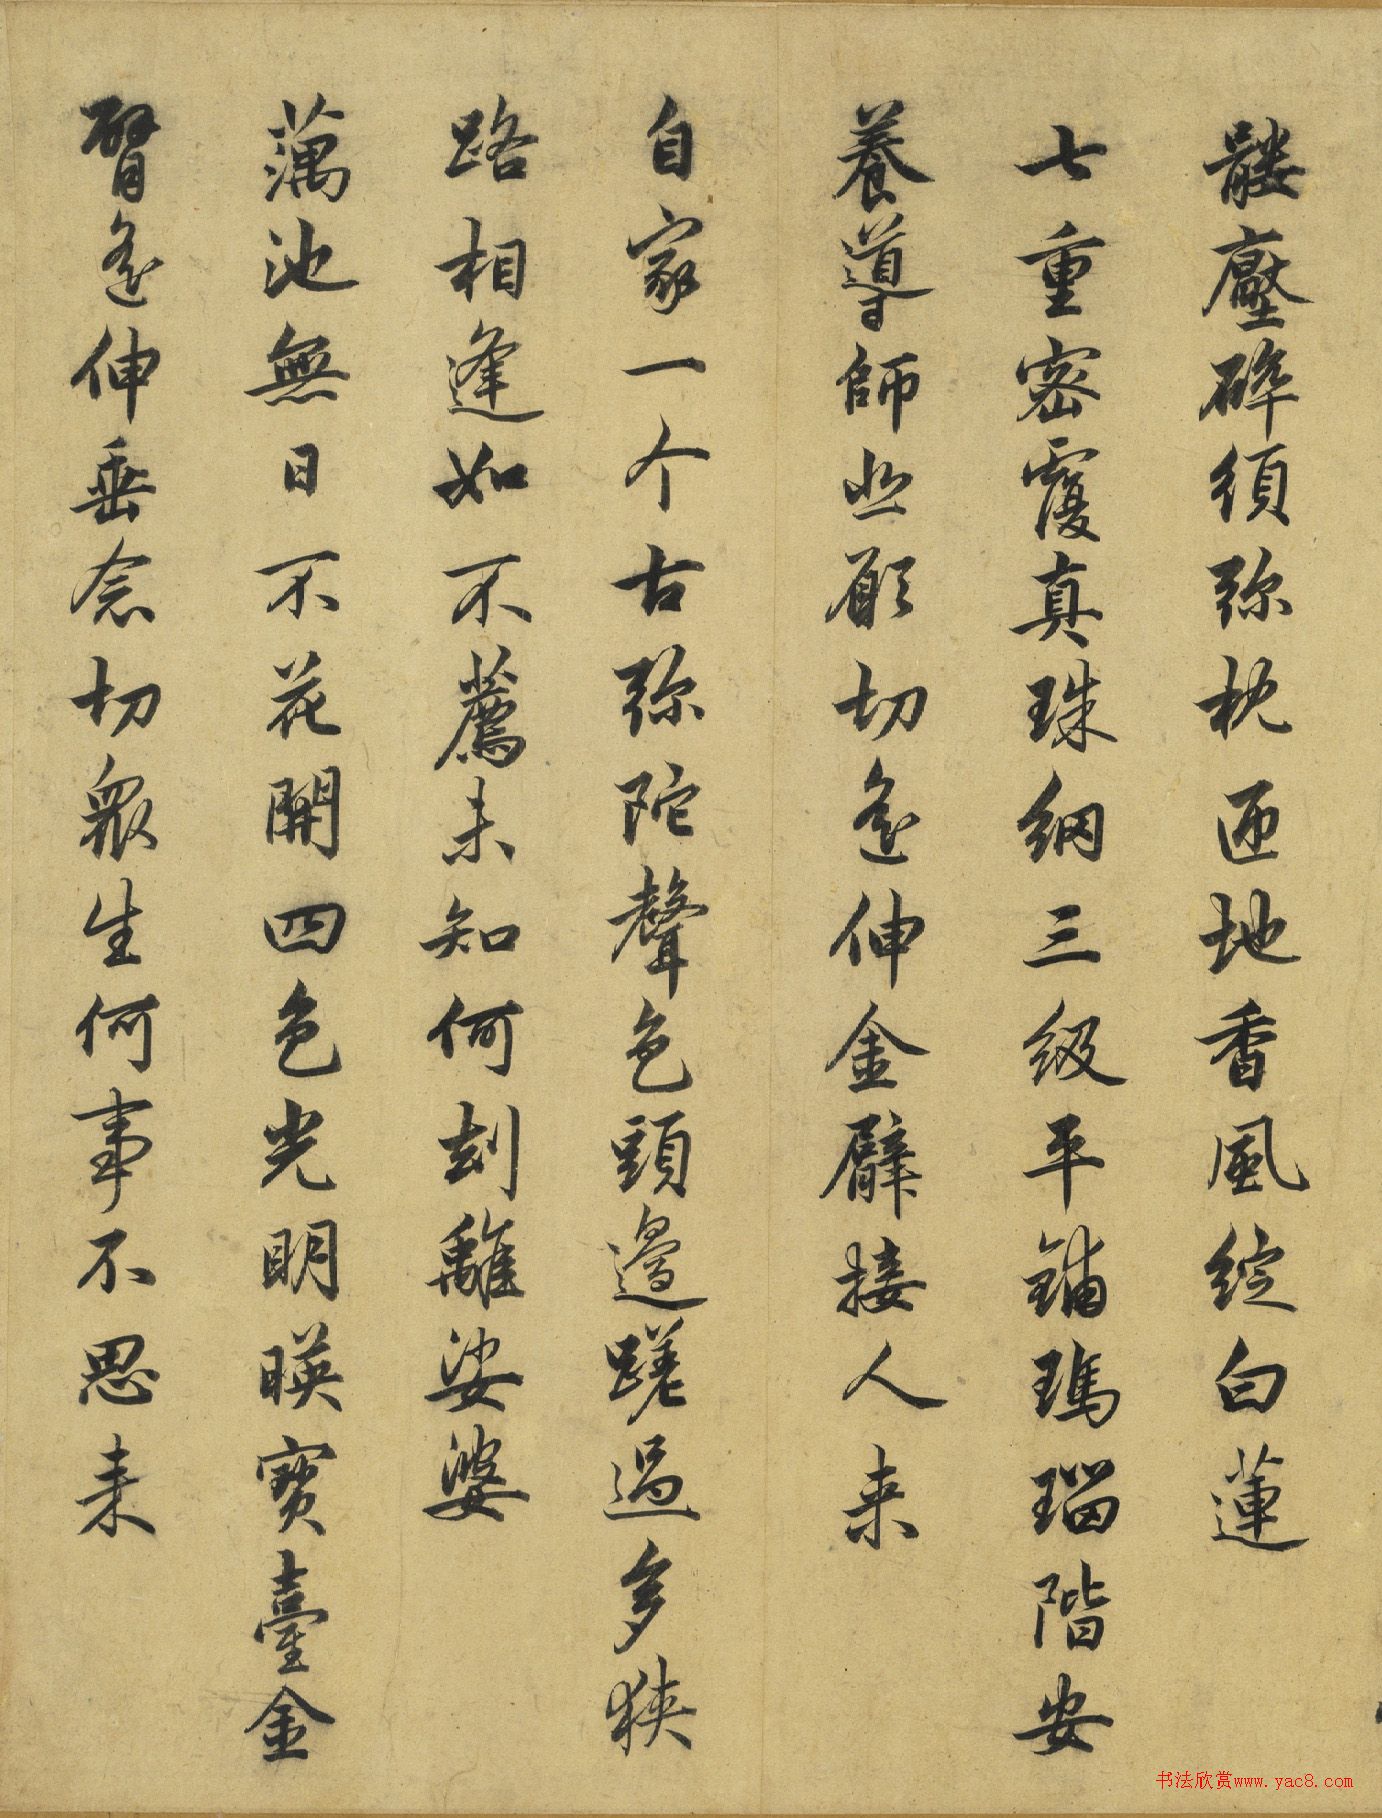 髅壓碎須弥枕匝地香風綻白蓮
七重密覆真珠網三級平鋪瑪瑙階安
養導師悲願切遙伸金臂接人来
自家一个古弥陀聲色頭邊蹉過多狹
路相逢如不薦未知何刻離娑婆
藕池無日不花開四色光明暎寶臺金
臂遙伸垂念切衆生何事不思来
书法欣赏www.yac8.com